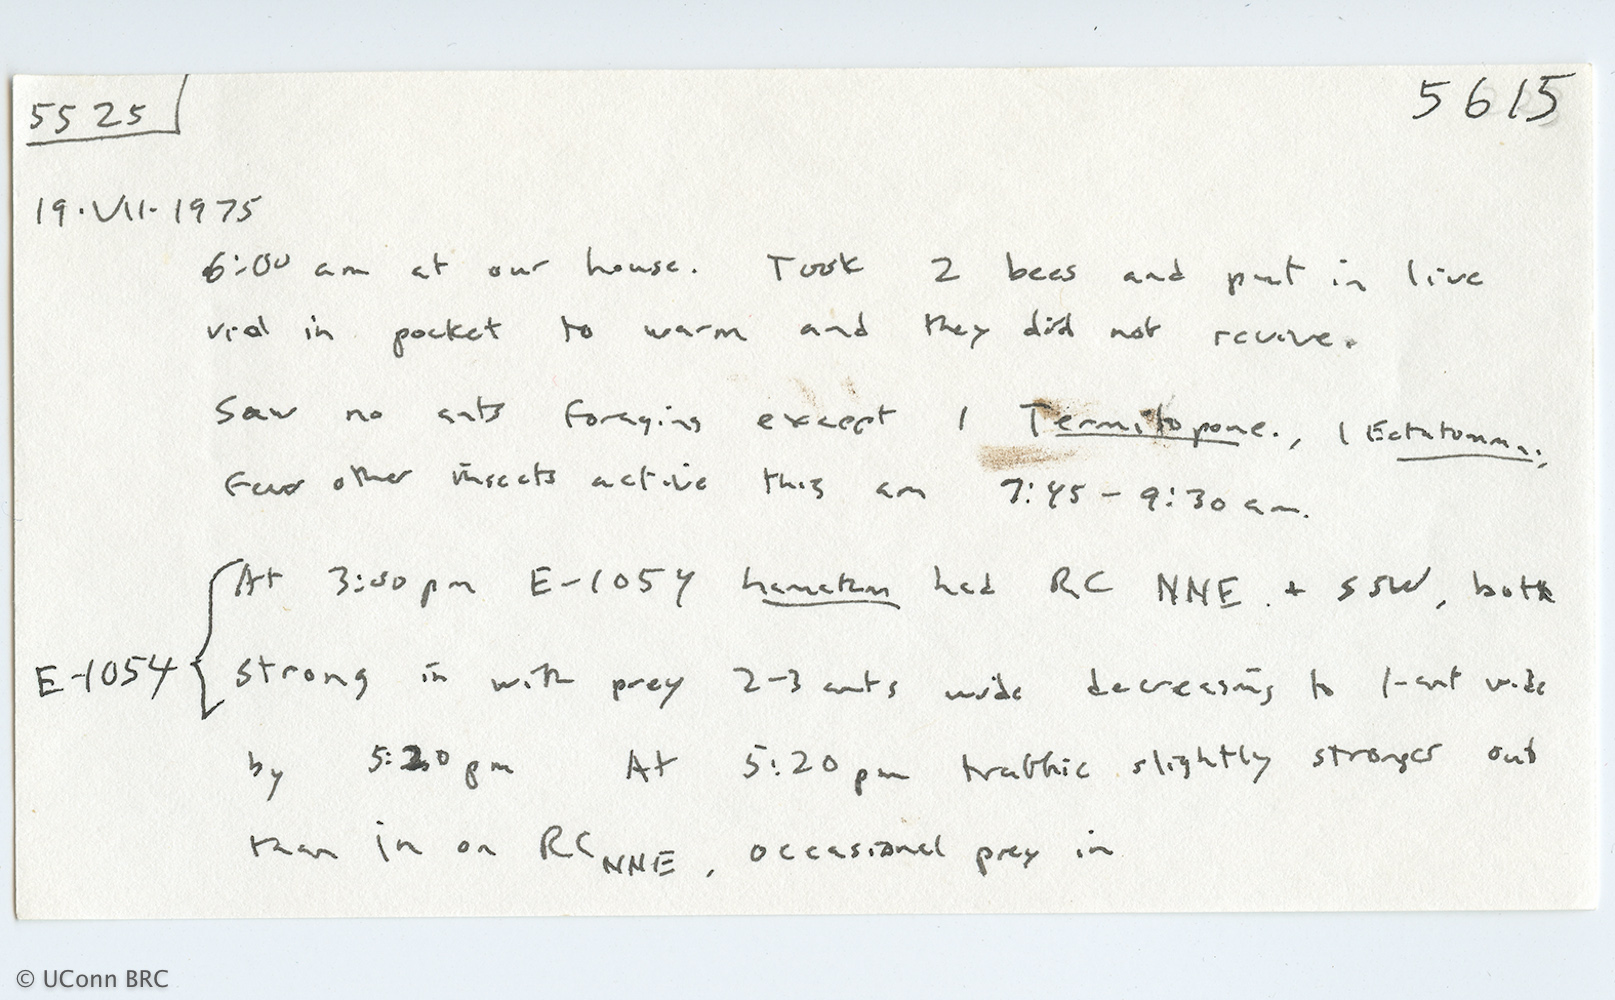 5525
5615
19.VII.1975
6:00 am at our house. Took 2 bees and put in live
vial in pocket to warm and they did not revive.
Saw no ants foraging except 1 Termitopone., 1 Ectatomma.;
Few other insects active this am 7:45 - 9:30 am.
At 3:00 pm E-1054 hamatum had RC NNE + SSW, both
E-1054 strong in with prey 2-3 ants wide decreasing to 1-ant wide
by 5:20 pm At 5:20 pm traffic slightly stronger out
than in on RC NNE, occasional prey in
© UConn BRC